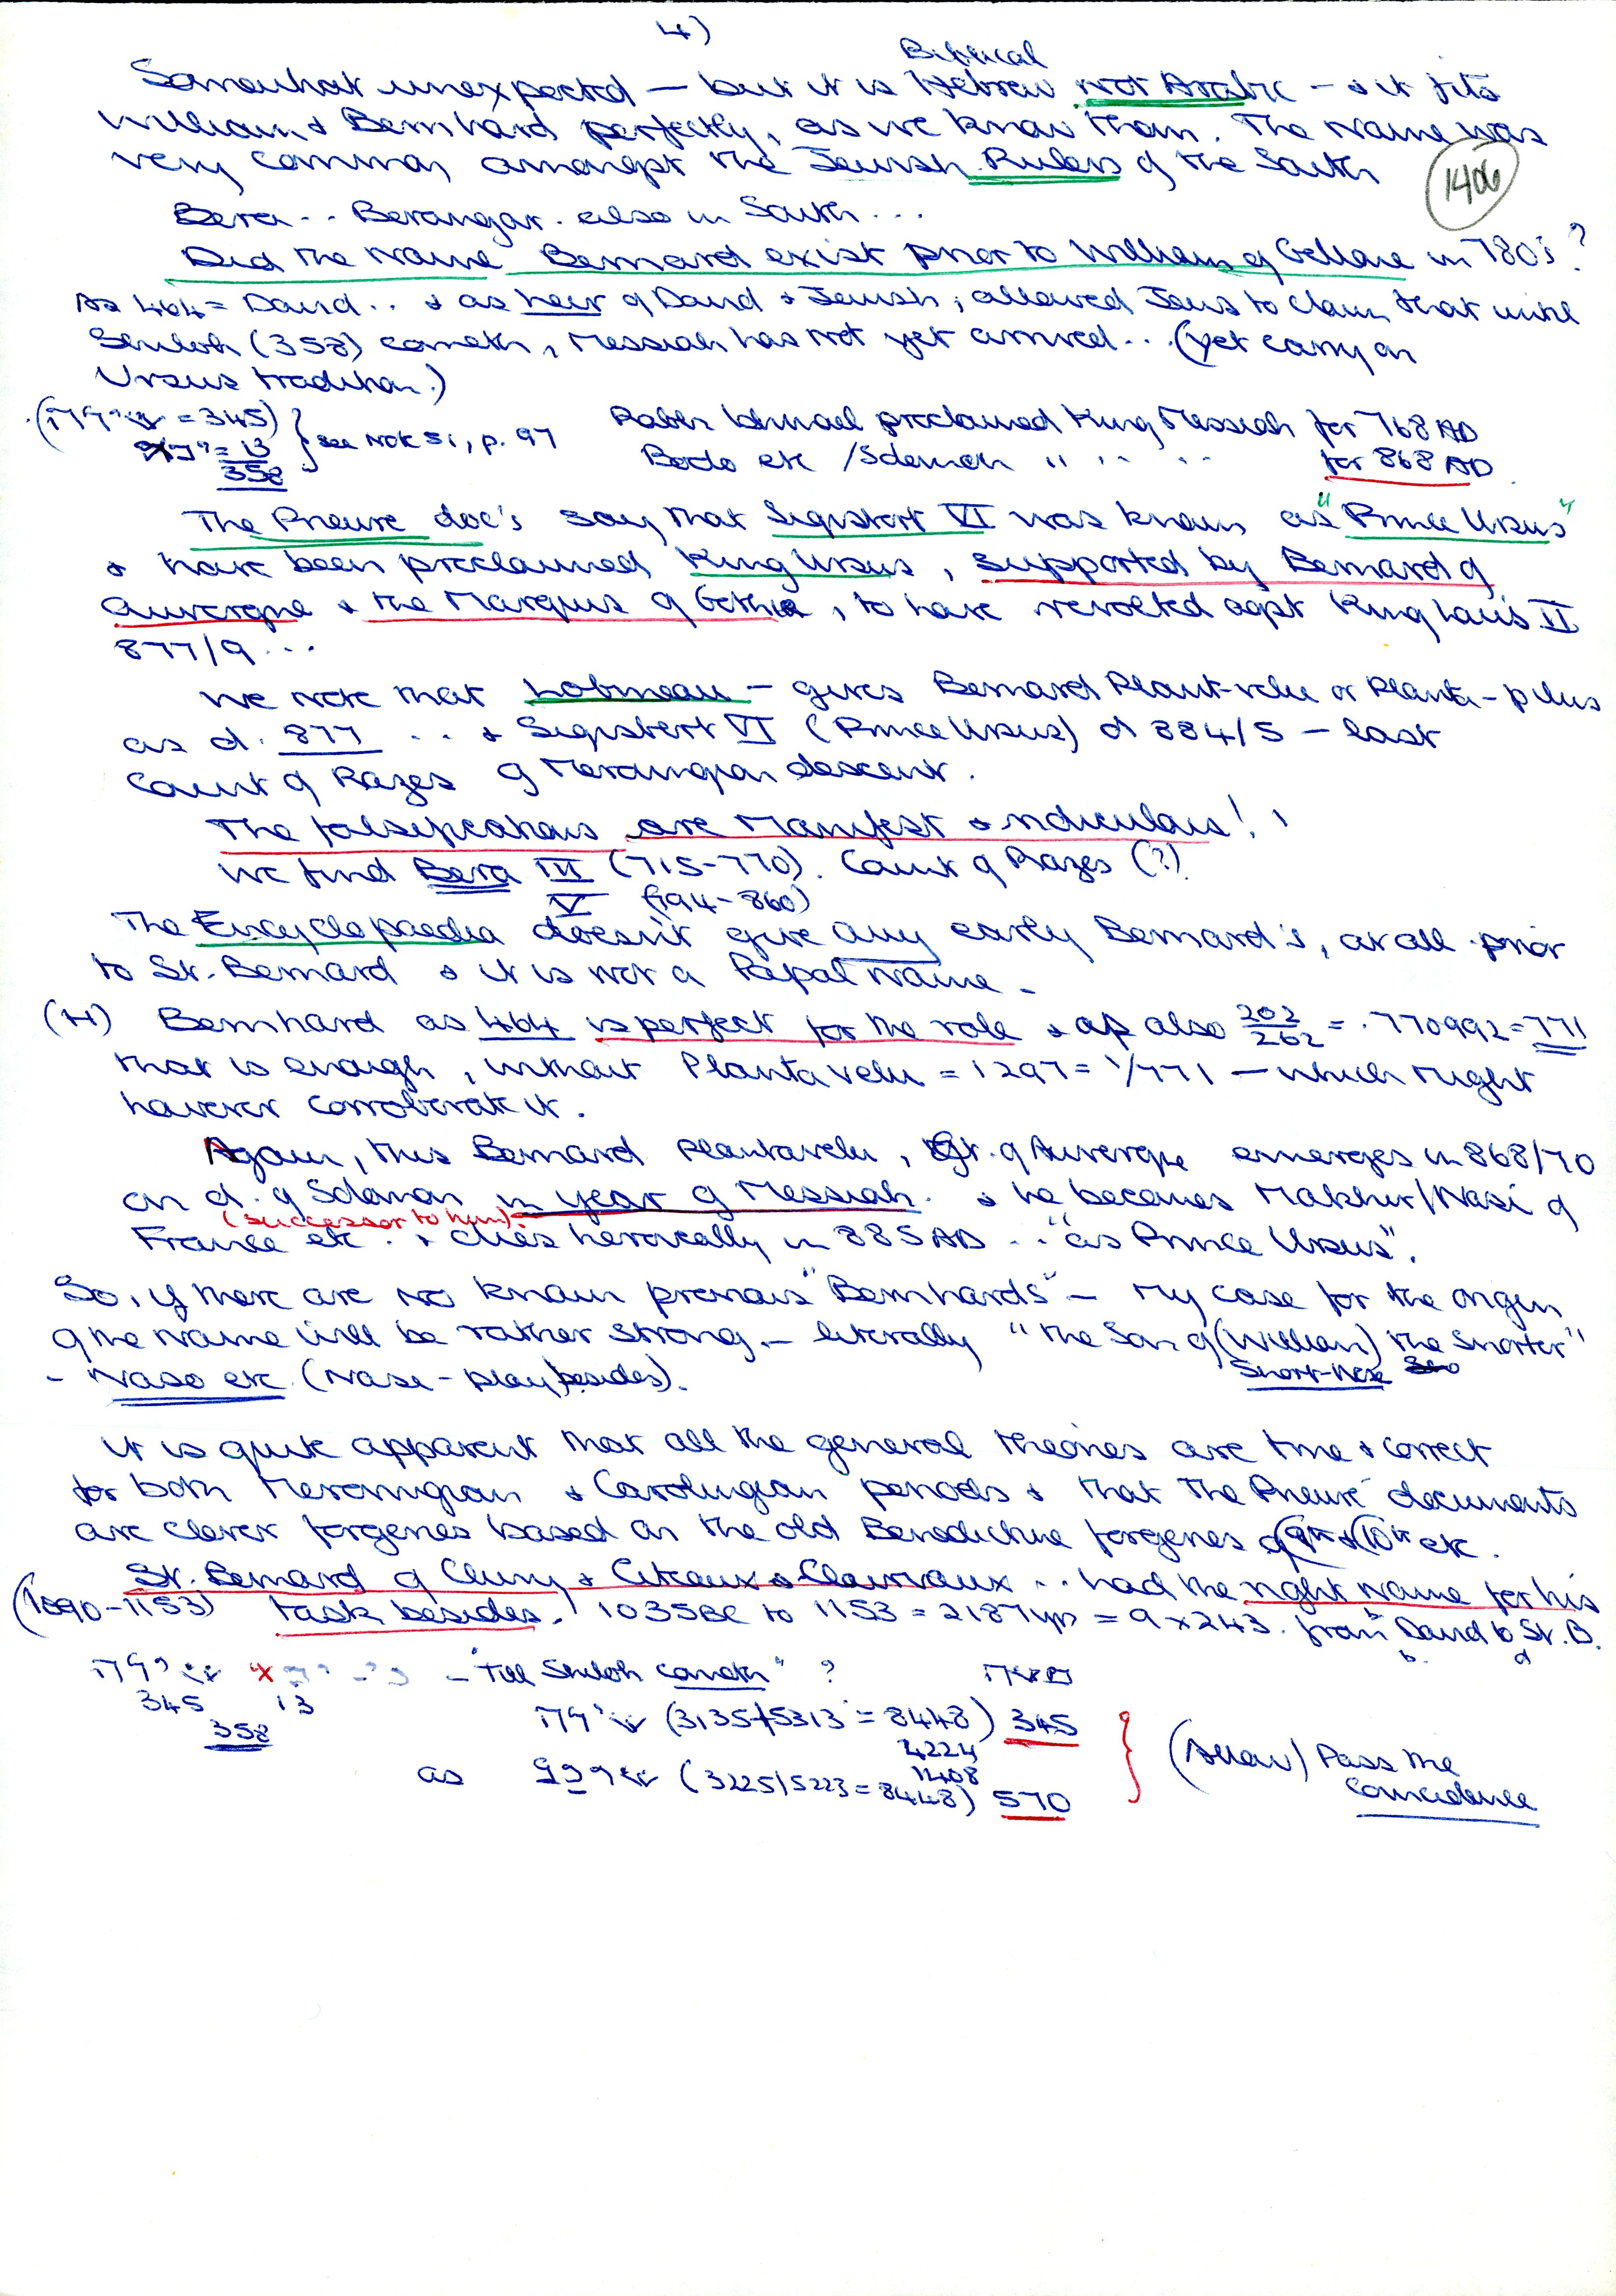 4)
Biblical
Somewhat unexpected — but it is Hebrew not Arabic - & it fits
William & Bernhard perfectly, as we know them. The Name was
very common amongst the Jewish Rulers of the South
1406
Bera .. Berangar. also in South ...
Did the Name Bernard exist prior to William of Gellone in 780's?
As 464 = David .. & as heir of David & Jewish, allowed Jews to claim that until
Shiloh (358) cometh, Messiah has not yet arrived ... (yet carry on
Ursus tradition.)
= 345) } see Note 51, p. 97 Rabbi Ishmael proclaimed King Messiah for 768 AD
= 13 Bodo etc / Solomon " " " " for 868 AD
358
The Prieure doc's say that Sigisbert VI was known as "Prince Ursus"
& have been proclaimed King Ursus, supported by Bernard of
Auvergne & the Marquis of Gothia, to have revolted agst King Louis II
877/9 ...
We note that Lobineau - gives Bernard Plant-velu or Planta-pilus
as d. 877 ... & Sigisbert VI (Prince Ursus) d 884/5 - last
Count of Razes of Merovingian descent.
The falsifications are Manifest & ridiculous! !
We find Bera III (715-770). Count of Razes (?)
V (794-860)
The Encyclopaedia doesn't give any early Bernard's, at all prior
to St. Bernard & it is not a Papal Name -
(H) Bernhard as 464 is perfect for the role & as also 202/262 = .770992 = 771
that is enough, without Plantavelu = 1297 = 1/771 - which might
however corroborate it.
Again, this Bernard Plantavelu, Ct. of Auvergne emerges in 868/70
on d. of Solomon in year of Messiah. & he becomes Makhir/Nasi of
(successor to him)
France etc. & dies heroically in 885 AD .. "as Prince Ursus".
So, if there are no known previous "Bernhards" - My case for the origin
of the Name will be rather strong. - literally "the Son of (William) the Shorter"
- Naso etc (Nase-play besides). Short-Nose
it is quite apparent that all the general theories are true & correct
for both Merovingian & Carolingian periods & that the Prieure documents
are clever forgeries based on the old Benedictine forgeries of (9th & (10th etc.
St. Bernard of Cluny & Citeaux & Clairvaux ... had the right Name for his
(1090-1153) task besides. ! 1035 BC to 1153 = 2187 yrs = 9 x 243. from David to St. B.
b. d
שילה - "Till Shiloh cometh" ?
345 13
358
שילה (3135+5313 = 8448) 345
4224
1408
as (3225/5223 = 8448) 570
} (Allow) Pass the
Coincidence